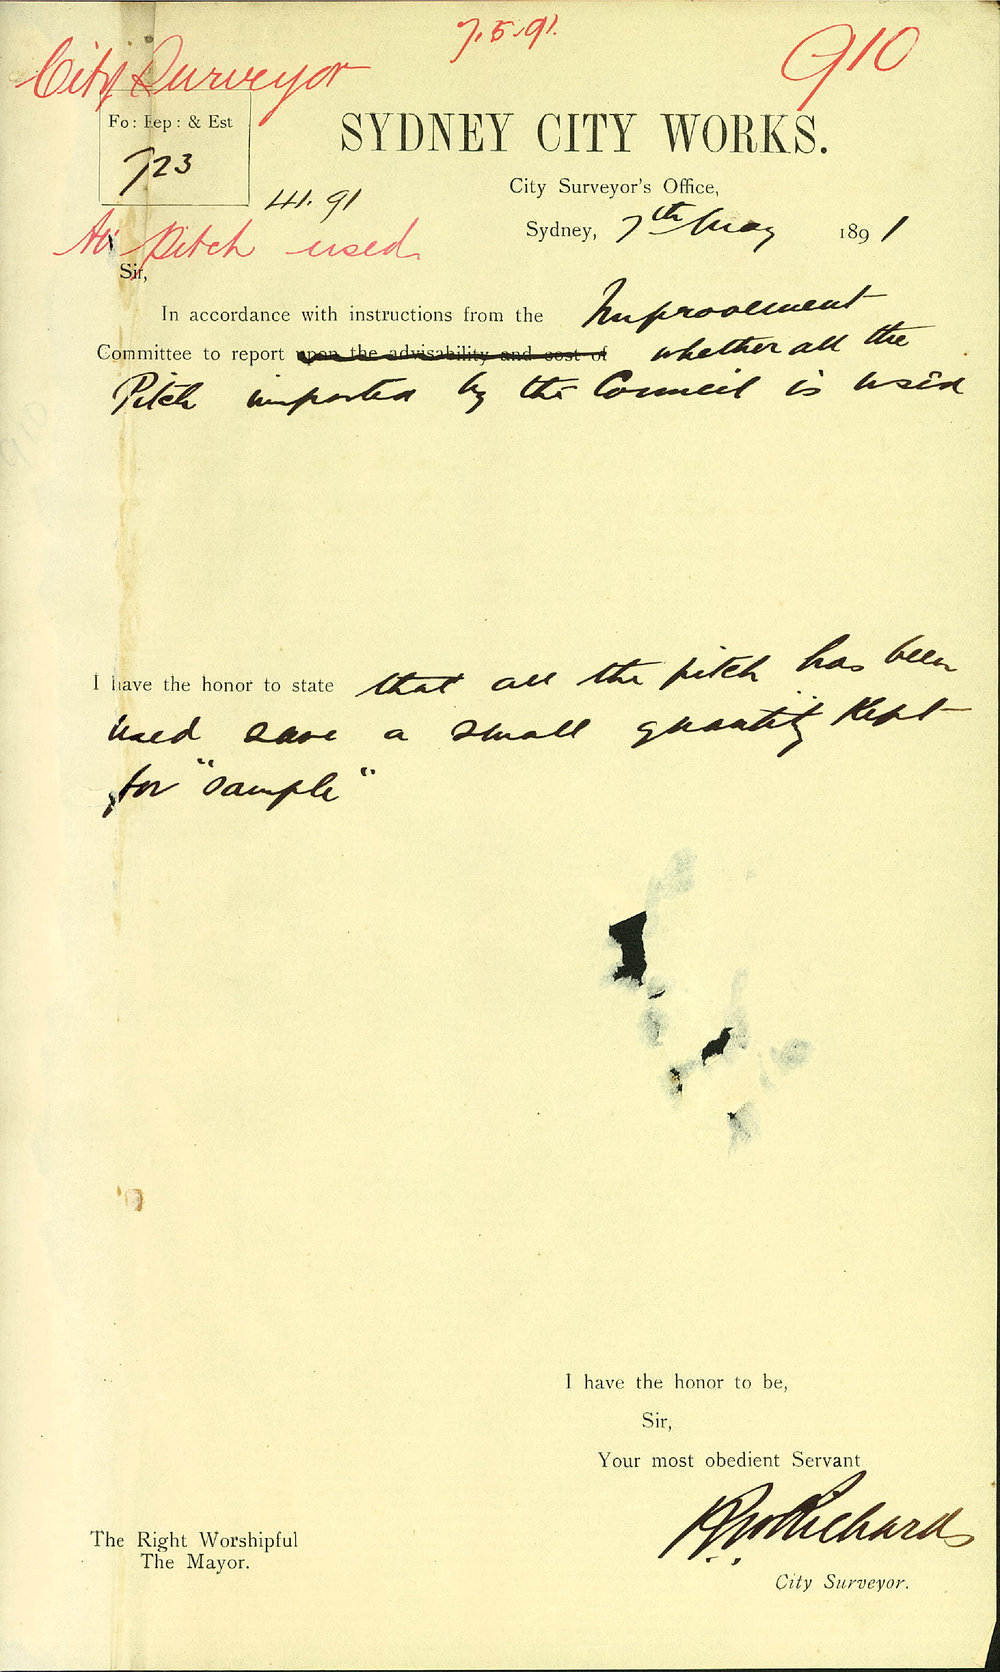 7.5.91.
910
City Surveyor
Fo: Rep: & Est
723
SYDNEY CITY WORKS.
City Surveyor's Office,
Sydney, 7th May 1891
pitch used
Sir,
In accordance with instructions from the Improvement
Committee to report upon the advisability and cost of whether all the
Pitch imported by the Council is used
I have the honor to state that all the pitch has been
used save a small quantity kept
for "sample"
I have the honor to be,
Sir,
Your most obedient Servant
Richards
City Surveyor.
The Right Worshipful
The Mayor.